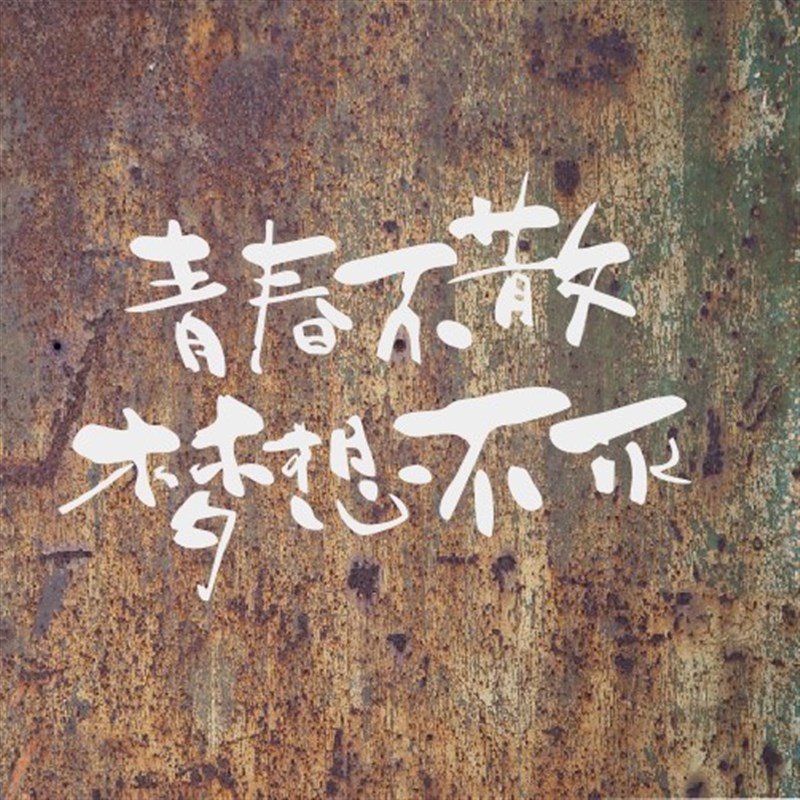 青春不散
梦想不灭